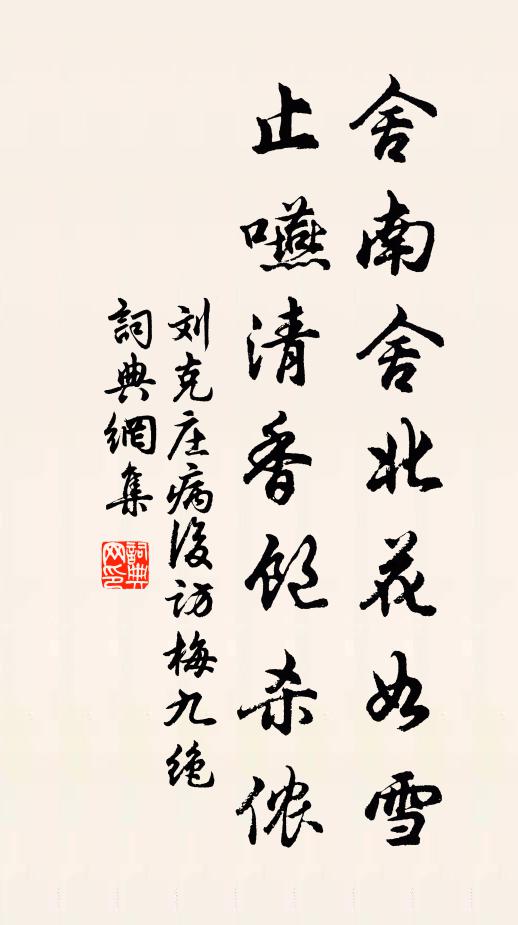 舍南舍北花如雪
止嚥清香飽杀侬
刘克庄病后访梅九绝
詞典網集
詞典网印